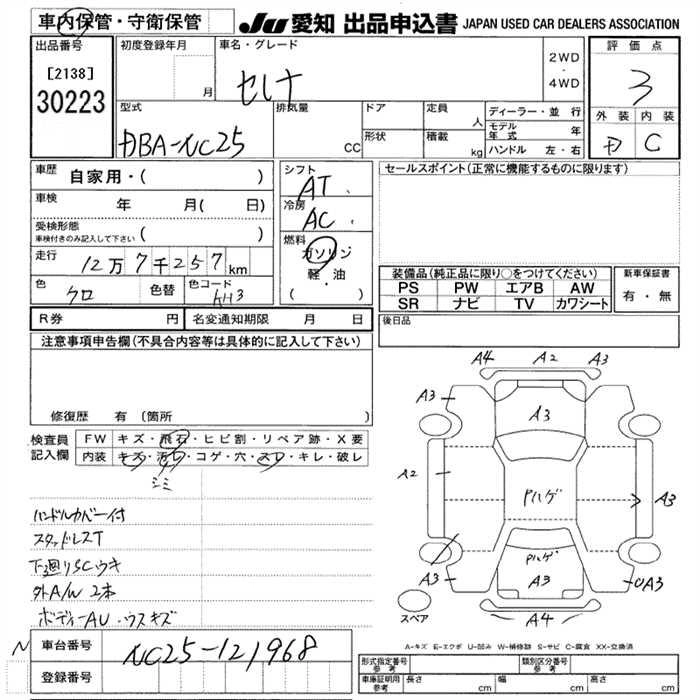 車内保管・守衛保管
JU 愛知 出品申込書 JAPAN USED CAR DEALERS ASSOCIATION
出品番号
[2138]
30223
初度登録年月
月
車名・グレード
セレナ
2WD
・
4WD
評価点
3
外装 内装
D C
型式
DBA-NC25
排気量
CC
ドア
形状
定員
人
積載
kg
ディーラー・並行
モデル年式 年
ハンドル 左・右
車歴
自家用・( )
車検 年 月( 日)
受検形態
車検付きのみ記入して下さい ( )
走行
12万7千257km
色 クロ 色替 色コード KH3
シフト
AT
冷房
AC
燃料
ガソリン
・
軽油
( )
セールスポイント(正常に機能するものに限ります)
装備品(純正品に限り○をつけてください)
PS PW エアB AW
SR ナビ TV カワシート
新車保証書
有・無
R券 円 名変通知期限 月 日
後日品
注意事項申告欄(不具合内容等は具体的に記入して下さい)
修復歴 有(箇所 )
検査員記入欄
FW キズ・飛石・ヒビ割・リペア跡・X要
内装 キズ・汚レ・コゲ・穴・スレ・キレ・破レ
シミ
ハンドルカバー付
スタッドレスT
下廻りSCウキ
外A/W 2本
ボディーAU・ウスキズ
A4 A2 A3
A3
A3
A2
Pハゲ
A3
Pハゲ
A3
A3
UA3
A4
スペア
A-キズ E-エクボ U-凹み W-補修跡 S-サビ C-腐食 XX-交換済
N
車台番号
NC25-121968
登録番号
形式指定番号 参考
類別区分番号 参考
車庫証明用 参考 長さ cm 幅 cm 高さ cm